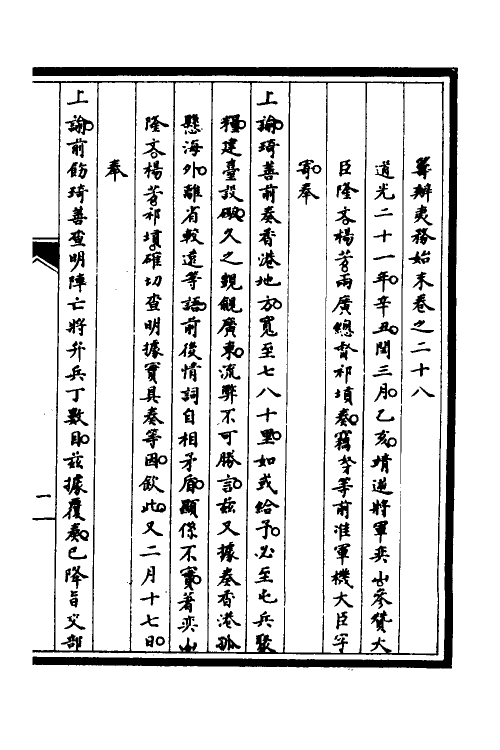 籌辦夷務始末卷之二十八
道光二十一年辛丑閏三月乙亥靖逆將軍奕山參贊大
臣隆文楊芳兩廣總督祁墳奏竊努等前准軍機大臣字
寄奉
上諭琦善前奏香港地方寬至七八十里如或給予必至屯兵聚
糧建臺設礮久之覬覦廣東流弊不可勝言茲又據奏香港孤
懸海外離省較遠等語前後情詞自相矛盾顯係不實著奕山
隆文楊芳祁墳確切查明據實具奏等因欽此又二月十七日
奉
上諭前飭琦善查明陣亡將弁兵丁數目茲據覆奏已降旨交部
一